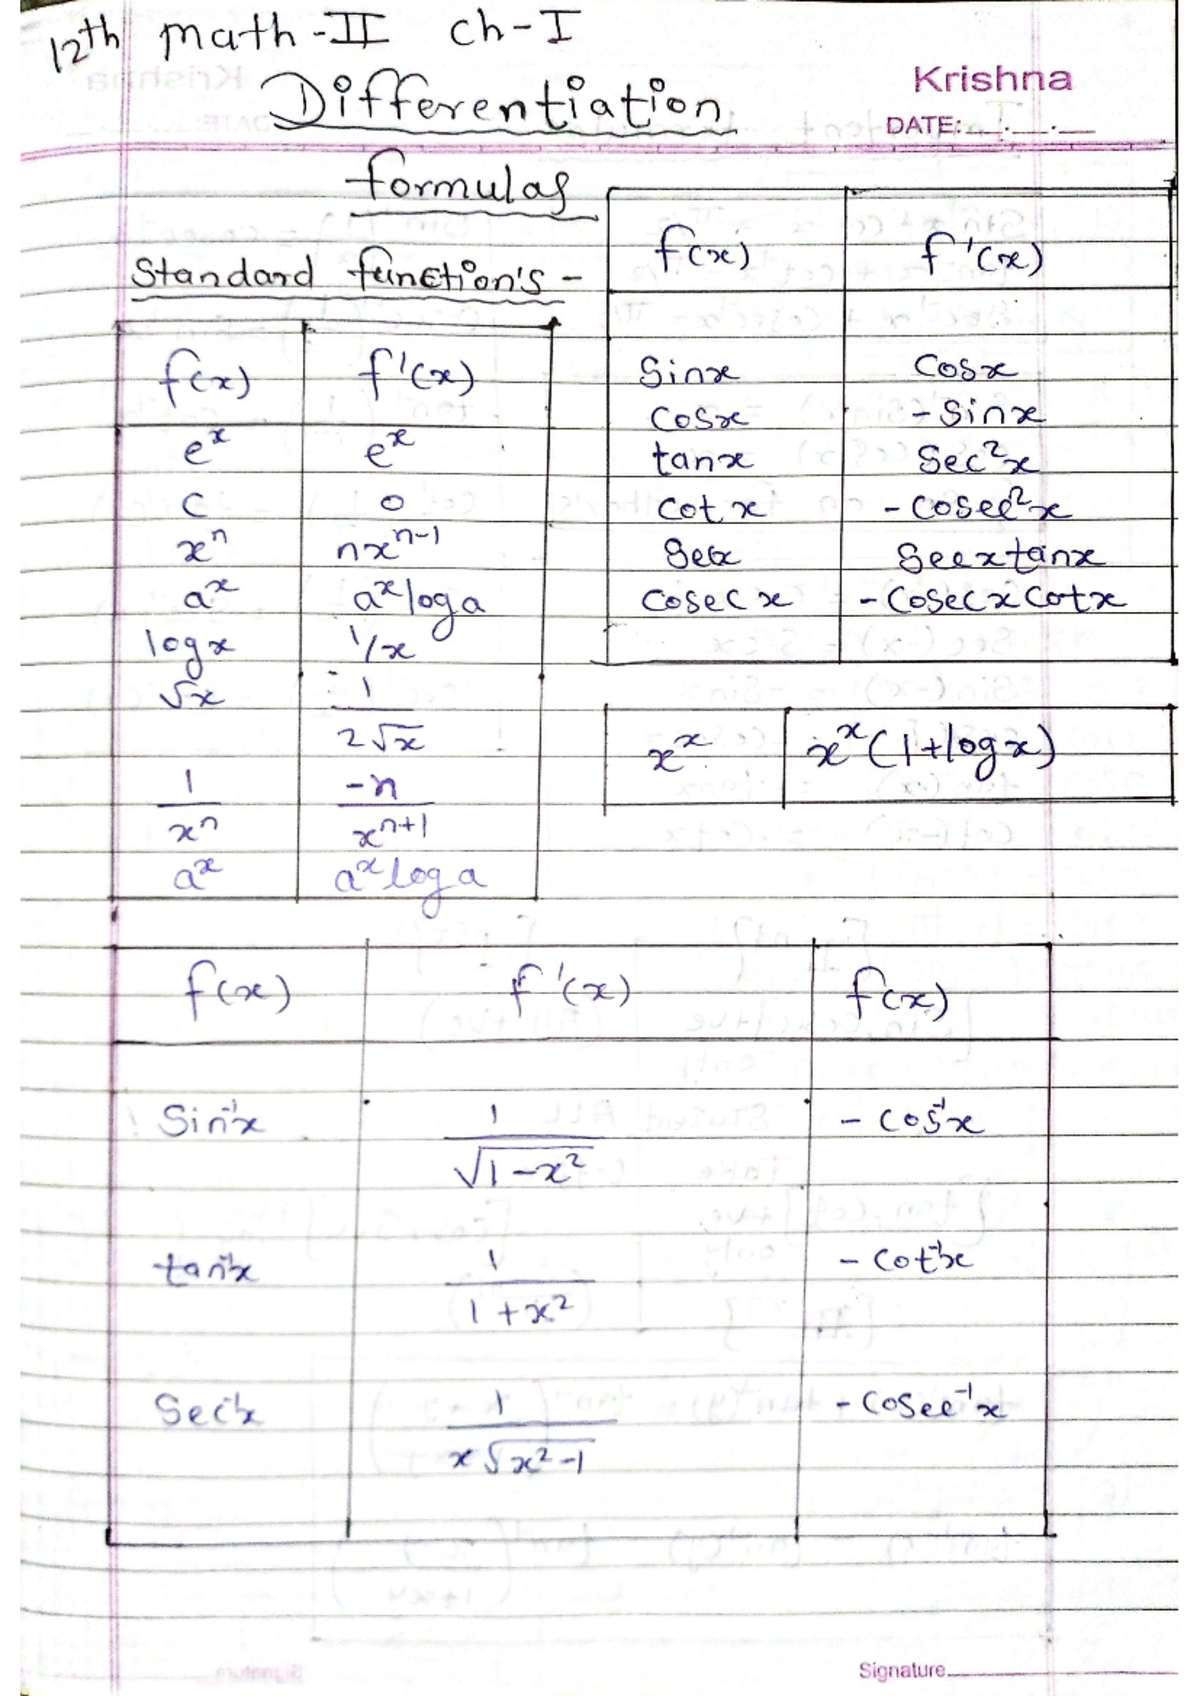 12th math-II ch-I
Differentiation
Krishna
DATE:
formulas
Standard function's -
f(x) f'(x)
e^x e^x
c 0
x^n nx^n-1
a^x a^x log a
log x 1/x
√x 1/2√x
1/x^n -n/x^n+1
a^x a^x log a
f(x) f'(x)
Sinx Cosx
Cosx - Sinx
tanx Sec²x
Cot x - Cosec²x
Secx Secxtanx
Cosec x - Cosecx Cotx
x^x x^x(1+logx)
f(x) f'(x) f(x)
Sin⁻¹x 1/√1-x² - Cos⁻¹x
tan⁻¹x 1/1+x² - Cot⁻¹x
Sec⁻¹x 1/x√x²-1 - Cosec⁻¹x
Signature